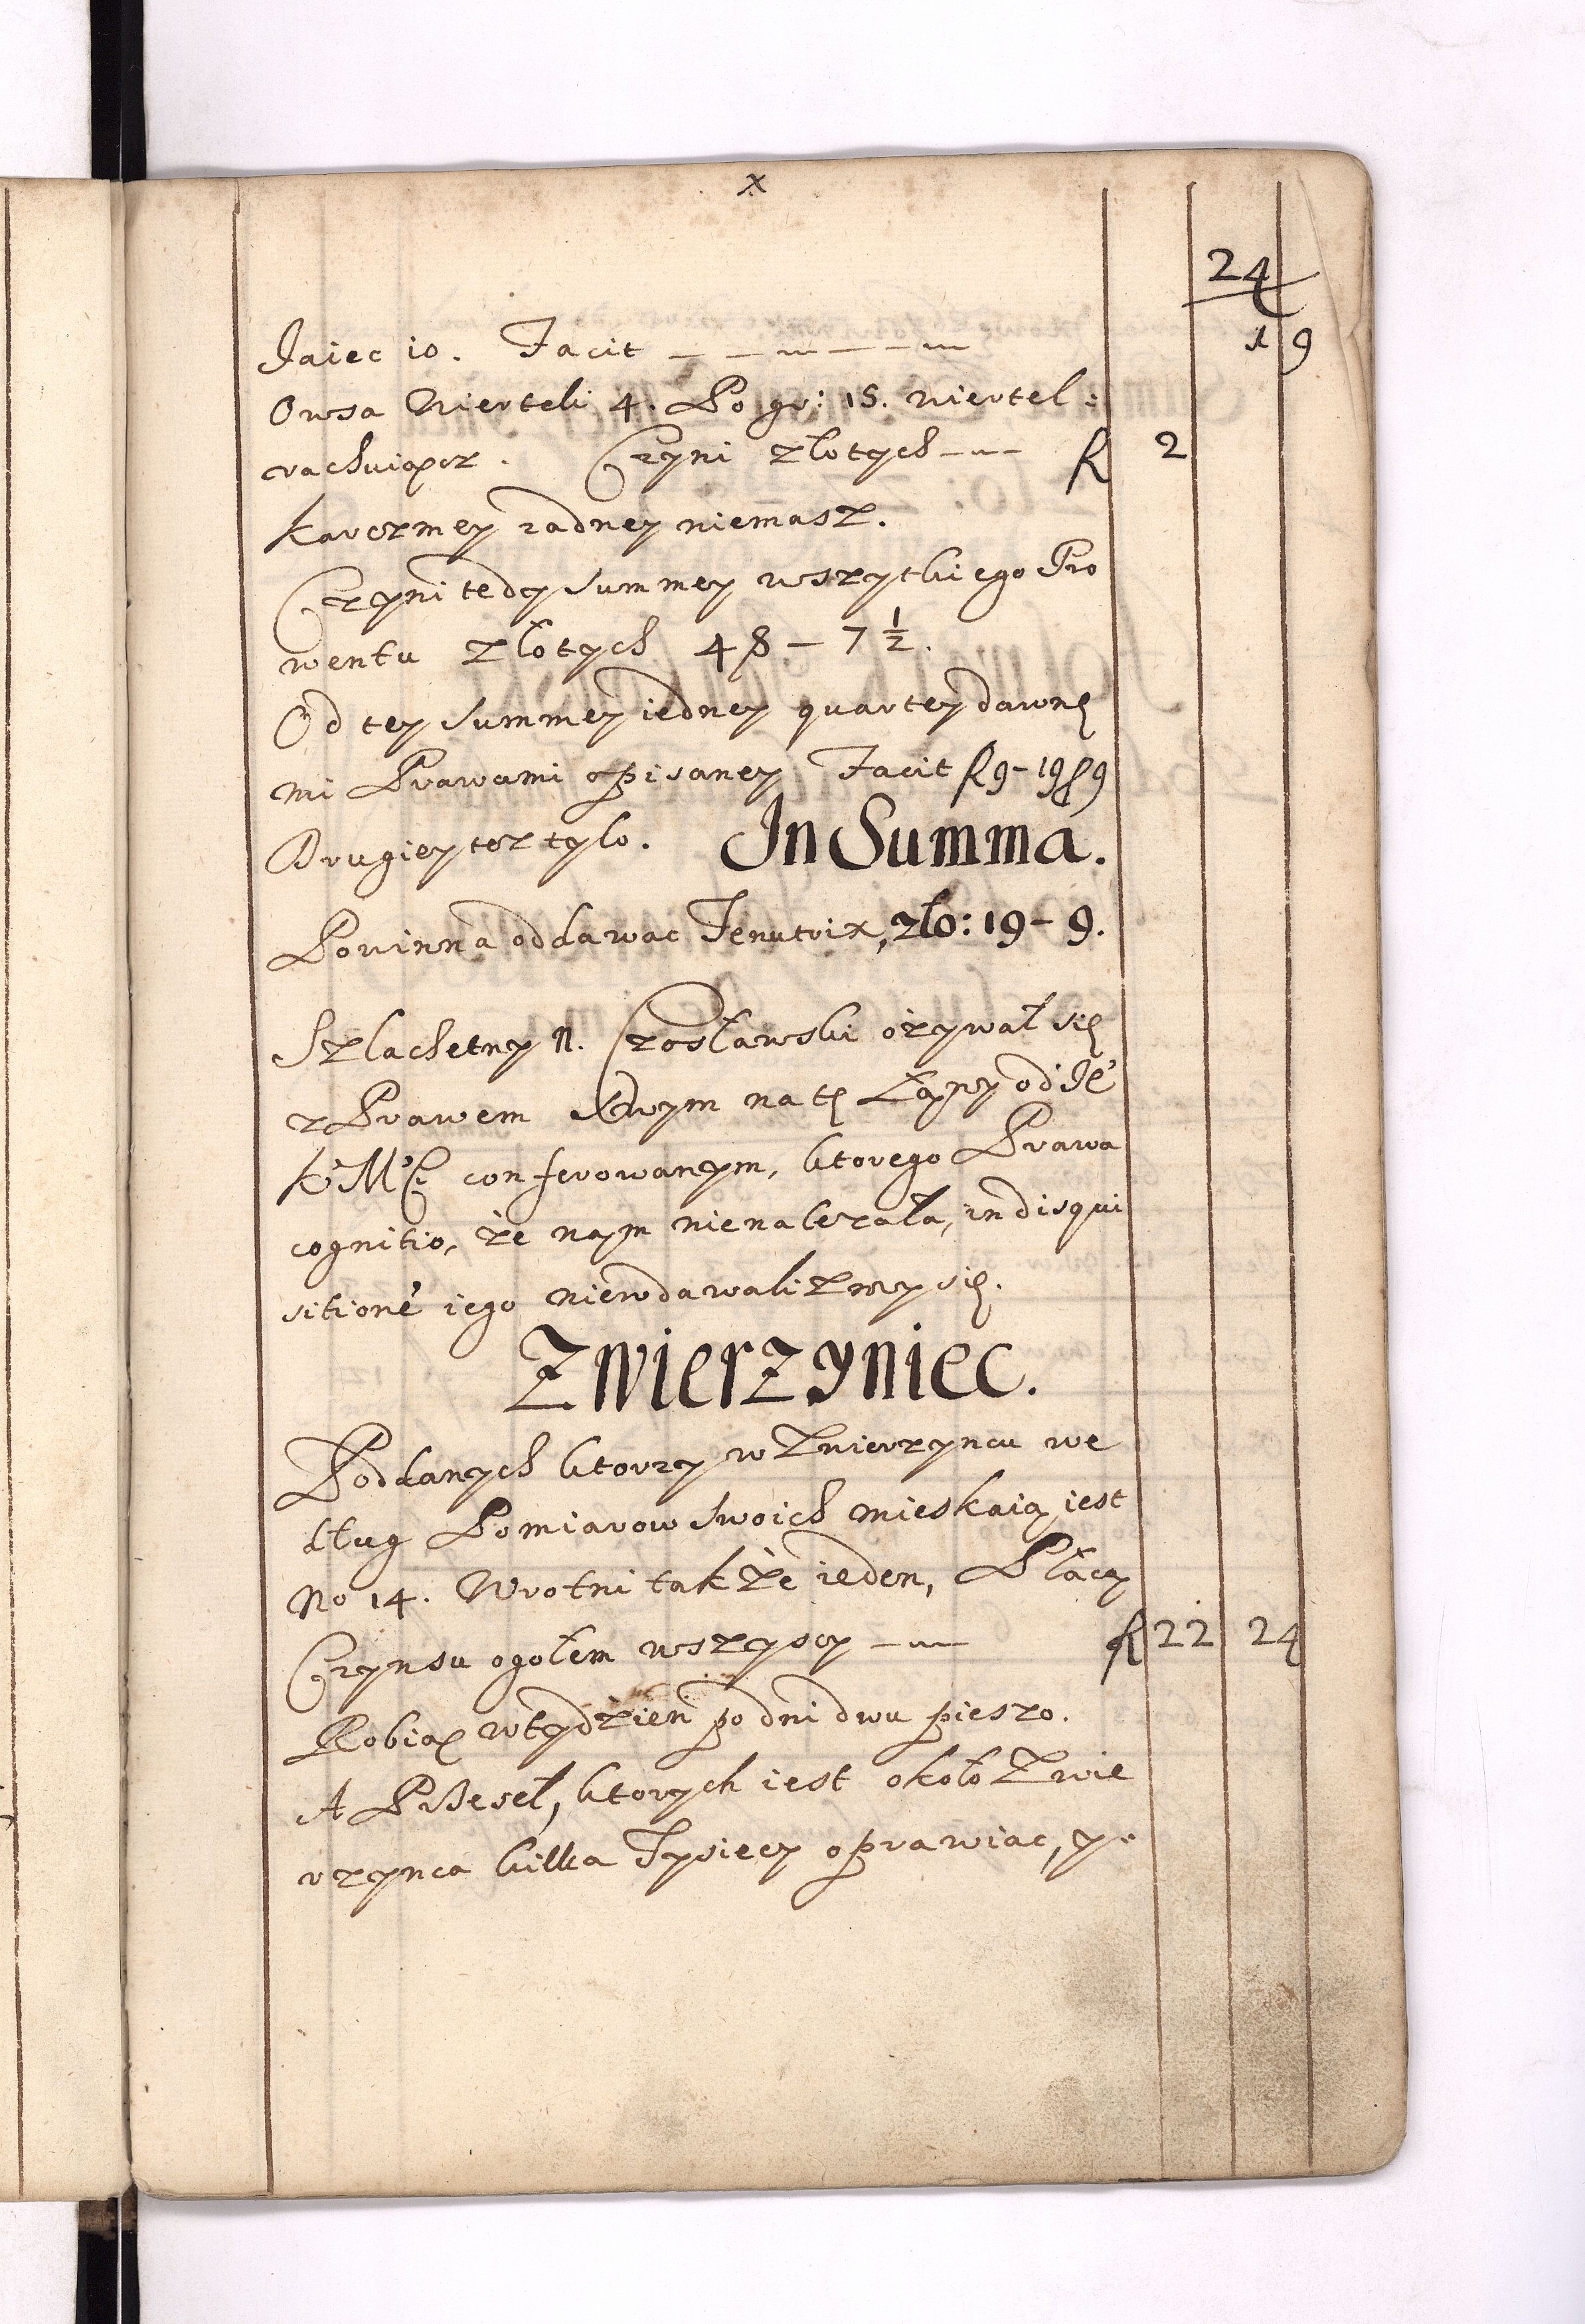 x
24
Jaiec 10. Facit 1 9
Owsa Wierteli 4. Po gr: 15. wiertel:
rachuiącz. Czyni złotych fl 2
Karczmey żadney niemasz.
Czyni tedy summey wszytkiego Pro
wentu złotych 48 – 7 ½.
Od tey summey iedney quartey dawnę
mi Prawami opisaney Facit fl 9 – 19 ß 9
Drugiey tez tylo. In Summa.
Powinna oddawac Tenutrix, zło: 19 – 9.
Szlachetny N. Czosławski ozywał się
z Prawem swym na tę Łąny od Jė
K M conferowanym, ktorego Prawa
cognitio, że nam nienależała, in disqui
sitionē iego niewdawalizmy się.
Zwierzyniec.
Poddanych ktorzy w Zwierzyncu we
dług Pomiarow swoich mieskaią iest
No 14. Wrotni także ieden, Płacą
Czynsu ogołem wszyscy fl 22 24
Robią w tydzień po dni dwu pieszo.
A Przeseł, ktorych iest około Zwie
rzynca kilka Tysiecy oprawiac, y